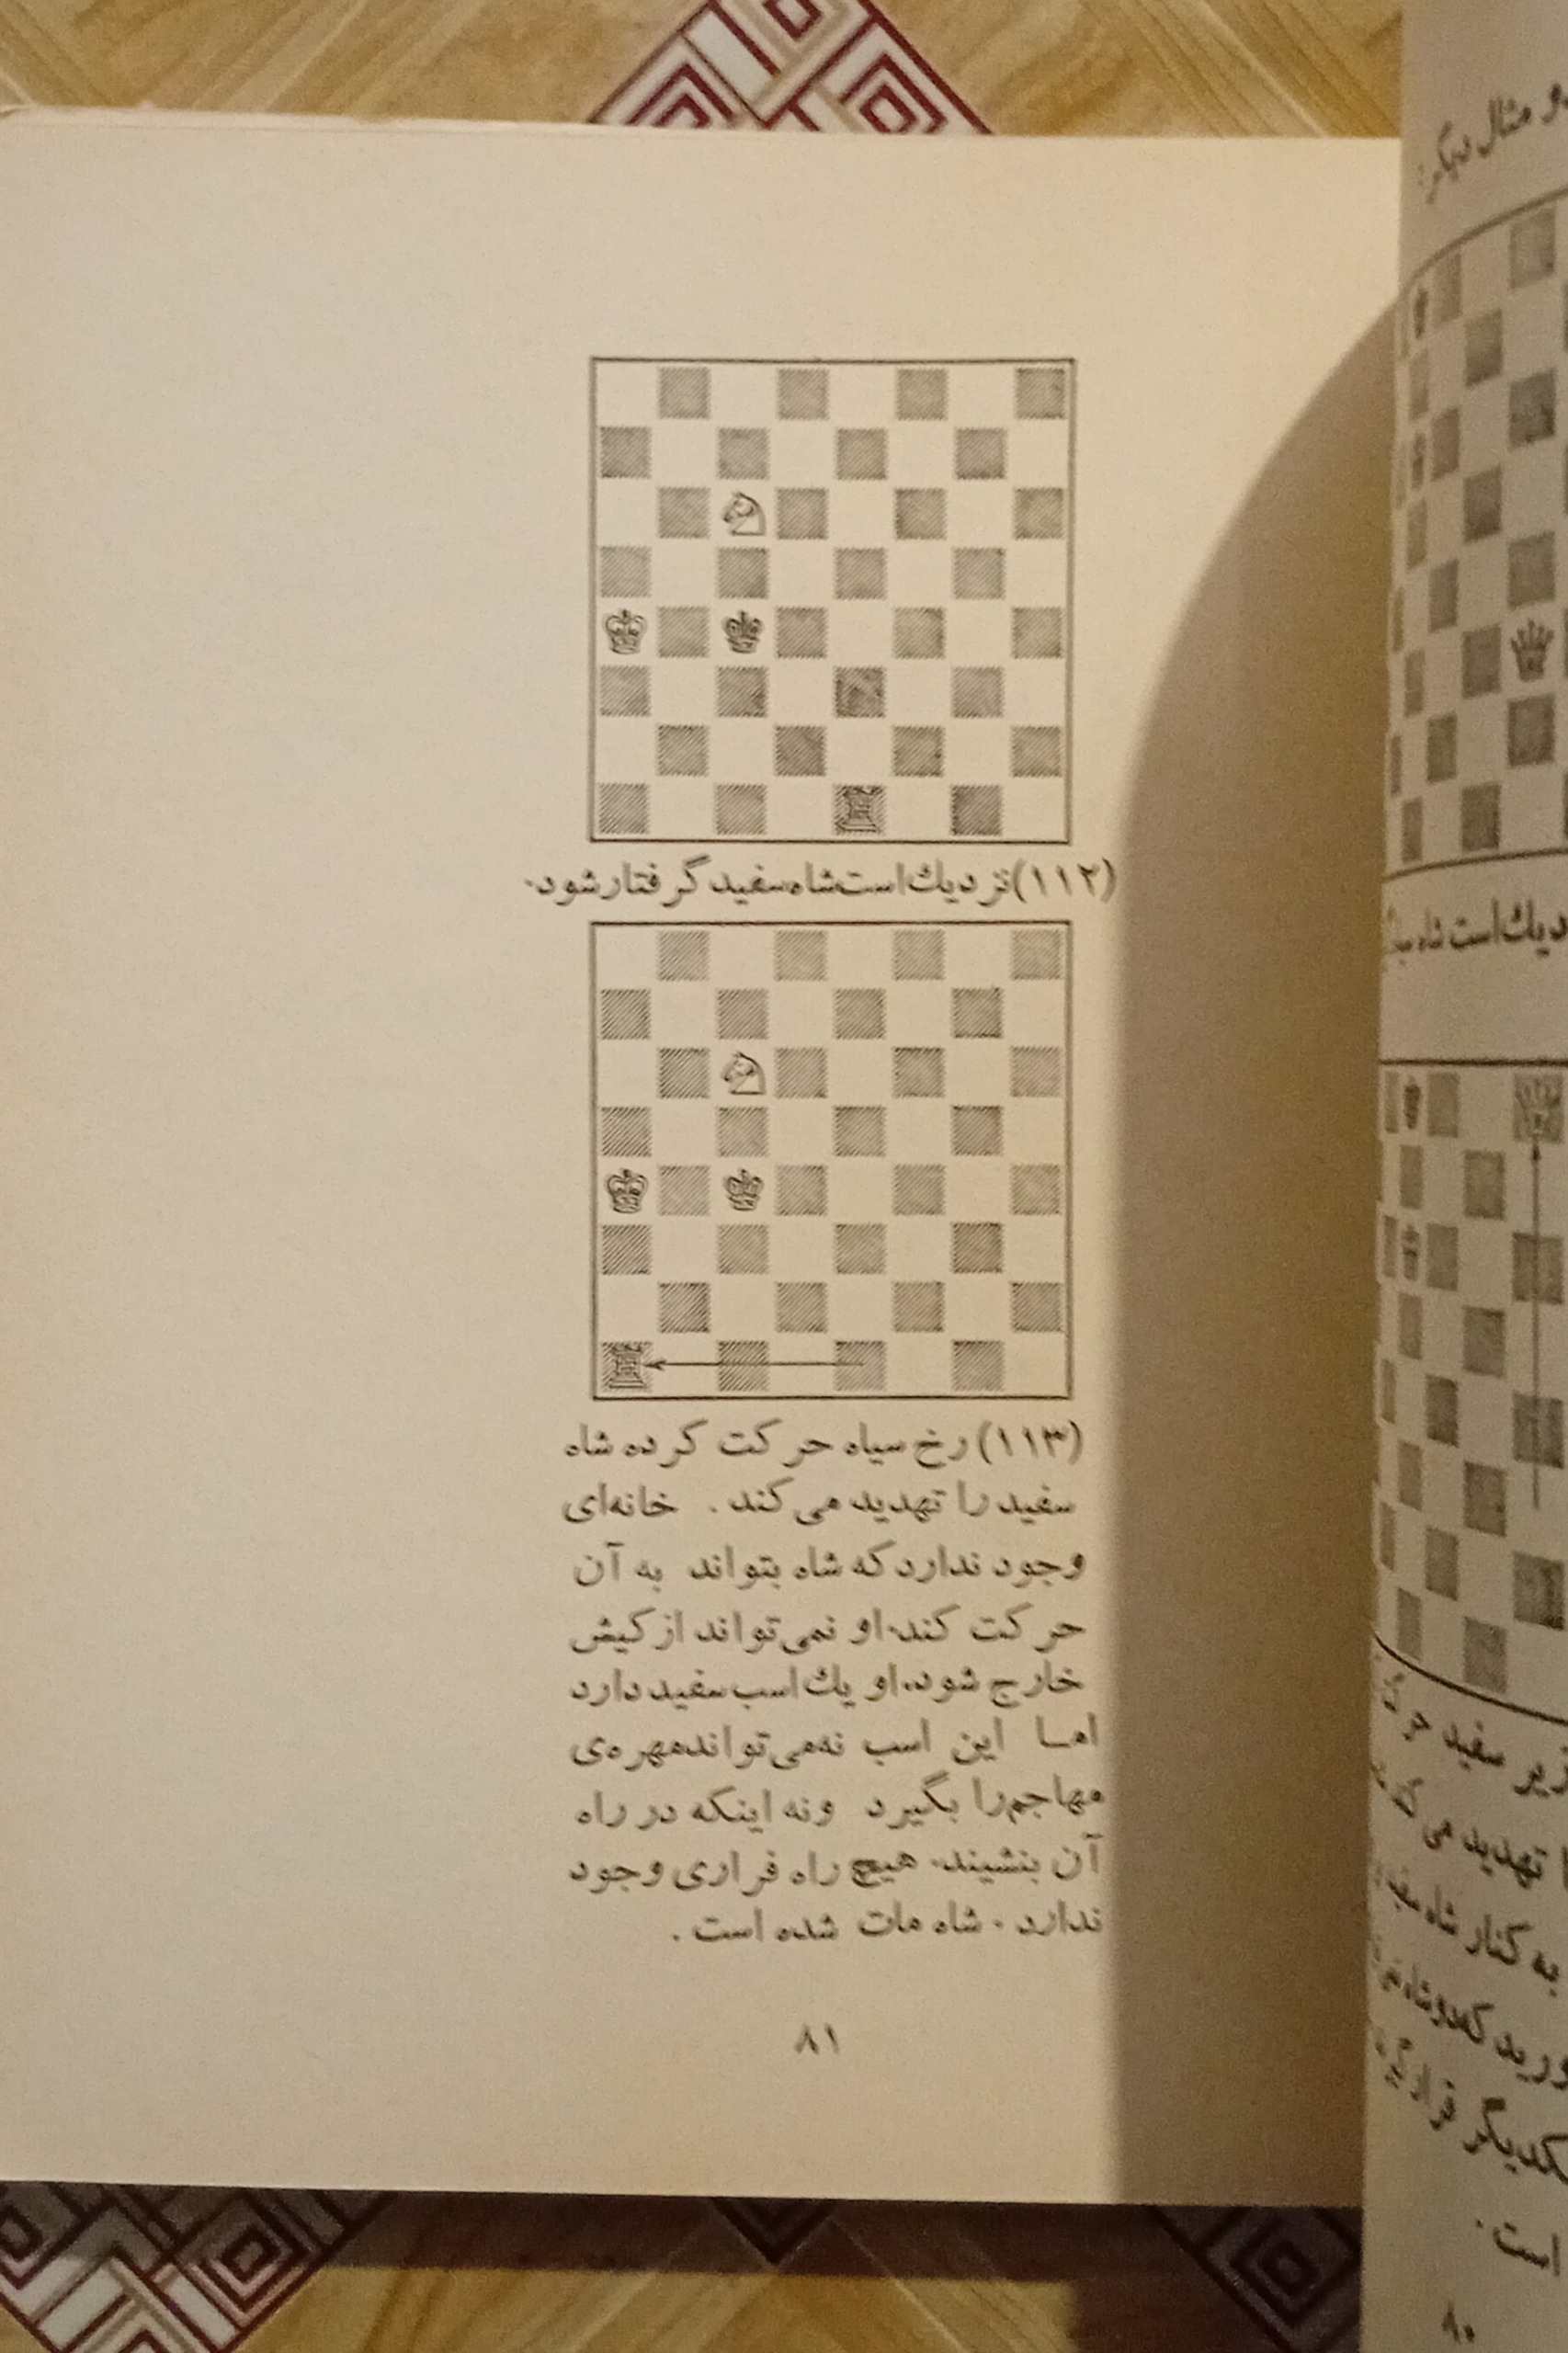 (۱۱۲) نزدیك است شاه سفید گرفتار شود.
(۱۱۳) رخ سیاه حرکت کرده شاه
سفید را تهدید می‌کند. خانه‌ای
وجود ندارد که شاه بتواند به آن
حرکت کند. او نمی‌تواند از کیش
خارج شود. او یك اسب سفید دارد
اما این اسب نه می‌تواند مهره‌ی
مهاجم را بگیرد ونه اینکه در راه
آن بنشیند. هیچ راه فراری وجود
ندارد. شاه مات شده است.
۸۱
و مثال دیگر:
دیك است شاه
زیر سفید
تهدید می
به کنار شاه
است.
۸۰